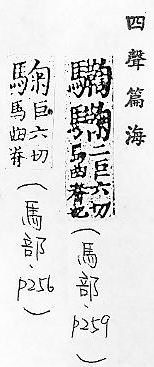 四聲篇海
驧䮗二巨六切馬曲脊也(馬部、p259)
䮗巨六切馬曲脊(馬部、p256)